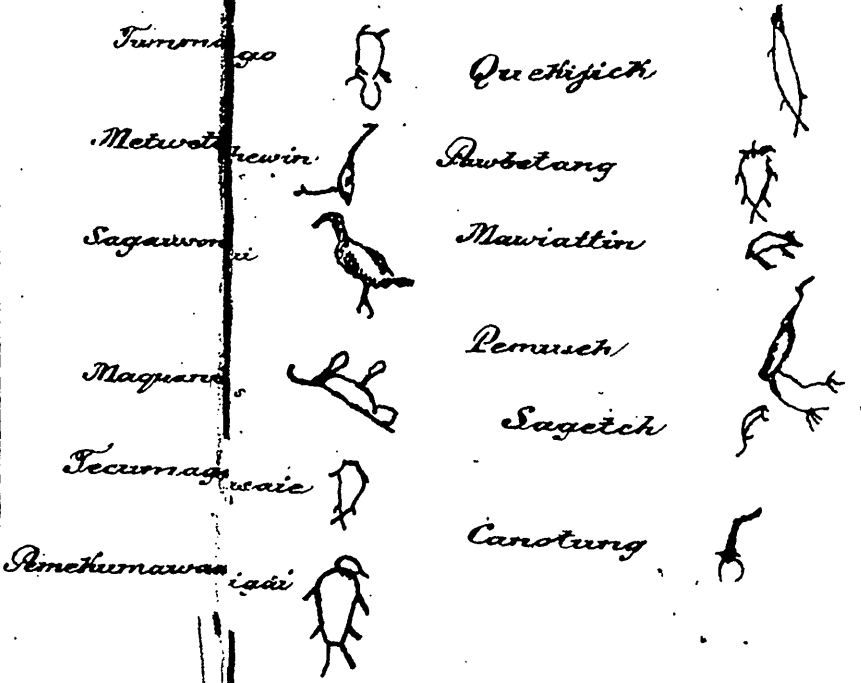 Tummago
Metwetchewin
Sagawonai
Maquanes
Tecumagawaie
Pemekumawaaigai
Quekijick
Pawbetang
Mawiattin
Pemusch
Sagetch
Canotung